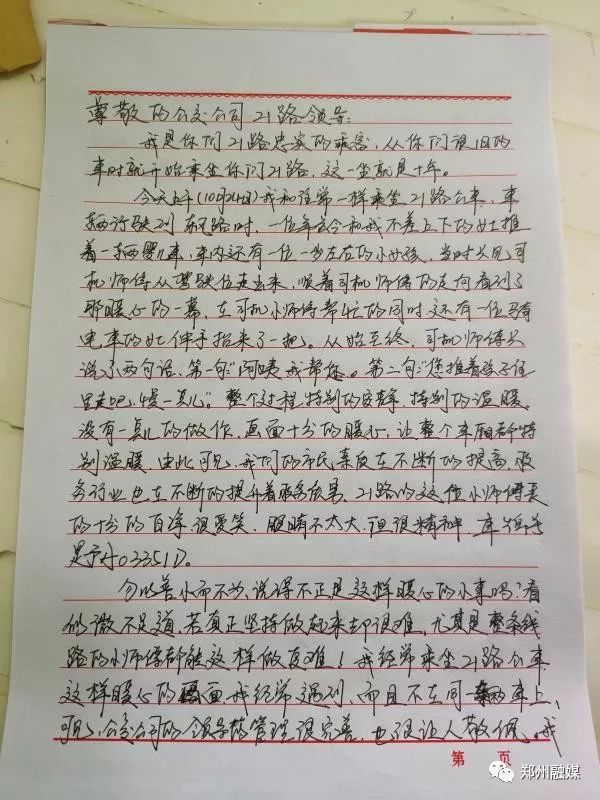 尊敬的公交公司21路领导:
我是你们21路忠实的乘客,从你们很旧的
车时就开始乘坐你们21路,这一坐就是十年。
今天上午(10月24日)我和往常一样乘坐21路公车,车
辆行驶到东风路时,一位年令和我不差上下的女士推
着一辆婴儿车,车内还有一位一岁左右的小女孩,当时只见司
机师傅从驾驶位走出来,顺着司机师傅的走向看到了
那暖心的一幕,在司机小师傅帮忙的同时还有一位骑
电车的女士伸手抬来了一把。从始至终,司机师傅只
说了两句话,第一句"阿姨,我帮您。第二句"您推着孩子往
里走吧,慢一点儿。"整个过程特别的安静,特别的温暖,
没有一点儿的做作,画面十分的暖心,让整个车厢都特
别温暖,由此可见,我们的市民素质在不断的提高,服
务行业也在不断的提升着服务质量,21路的这位小师傅长
的十分的白净,很爱笑,眼睛不太大,但很精神,车牌号
是豫A03351D。
勿以善小而不为,说得不正是这样暖心的小事吗?看
似微不足道,若真正坚持做起来却很难,尤其是整条线
路的小师傅都能这样做更难!我经常乘坐21路公车
这样暖心的画面,我经常遇到,而且不在同一辆车上,
可见,公交公司的领导的管理很完善,也很让人敬佩,我
第 页
郑州融媒